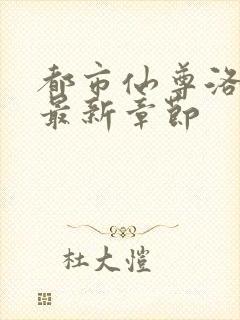 都市仙尊洛
最新章節
杜大愷